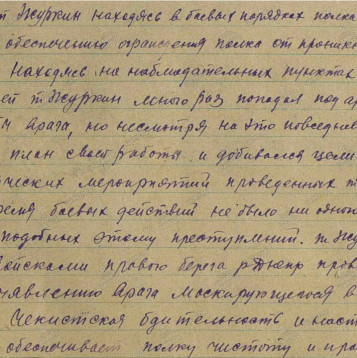 т Журкин находясь в боевых порядках полка
обеспечению ограждения полка от проникн
Находясь на наблюдательных пунктах
ей т. Журкин много раз попадал под ар
м врага, но несмотря на это повседнев
план своей работы и добивался цели
ческих мероприятий проведенных т
ремя боевых действий не было ни одног
подобных этому преступлений. т. Жу
войсками правого берега р. Днепр пров
явлению врага маскирующегося в
Чекистская бдительность и наст
обеспечивает полку чистоту и пра